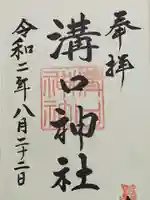 奉拝
溝口神社
令和二年八月二十二日